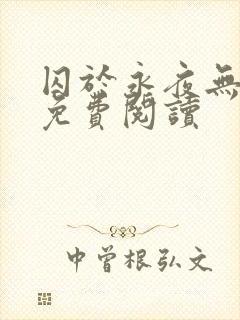 囚於永夜無
免費閱讀
中曾根弘文